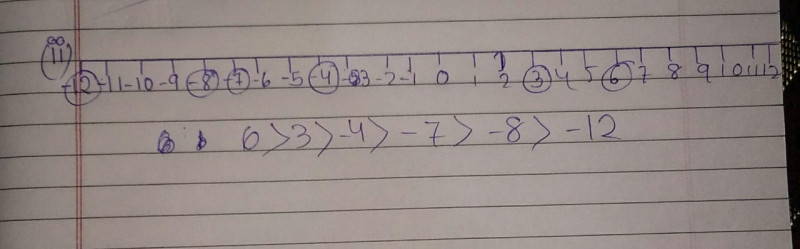 (11)
-12 -11 -10 -9 -8 -7 -6 -5 -4 -3 -2 -1 0 1 2 3 4 5 6 7 8 9 10 11 12
6 > 3 > -4 > -7 > -8 > -12